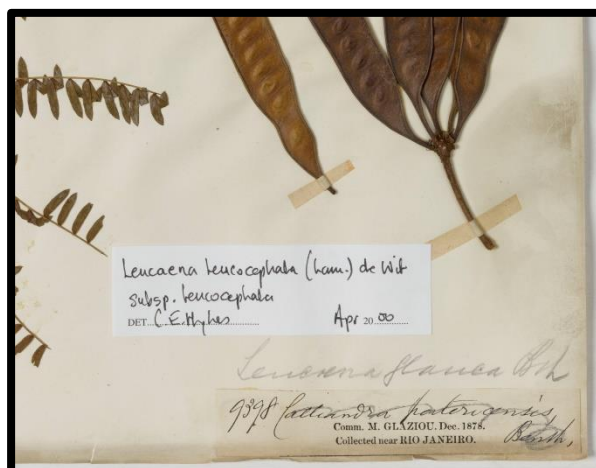 Leucaena leucocephala (Lam.) de Wit
subsp. leucocephala
DET. C.E. Hughes Apr 20 00
Leucaena glauca Bth
9398 Calliandra
Comm. M. GLAZIOU. Dec. 1878.
Collected near RIO JANEIRO.
Benth,